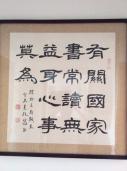 有關國家
書常讀無
益身心事
莫為